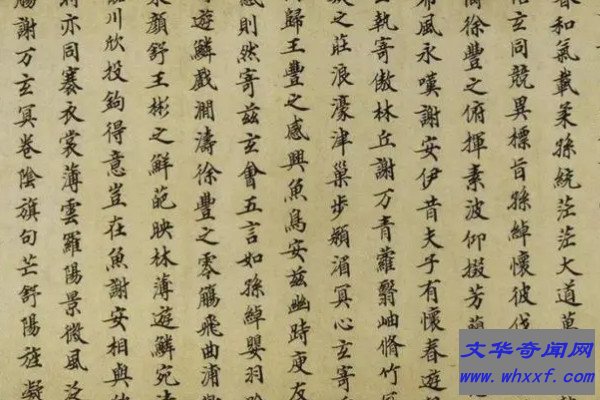 春和氣載柔孫統茫茫大道萬
玄同競異標旨孫綽懷彼伐
徐豐之俯揮素波仰掇芳蘭
希風永嘆謝安伊昔夫子有懷春遊
執寄傲林丘謝万青蘿翳岫脩竹
之莊浪濠津巢步潁湄冥心玄寄
歸王豐之感興魚鳥安茲幽跱庾友
感則然寄茲玄會五言如孫綽嚶羽吟
遊鱗戲澗濤徐豐之零觴飛曲浦歡
顏舒王彬之鮮葩映林薄遊鱗宛清
川欣投鉤得意豈在魚謝安相與
亦同褰衣裳薄雲羅陽景微風泛
謝万玄冥卷陰旗句芒舒陽旌凝
文华奇闻网
www.whxxf.com